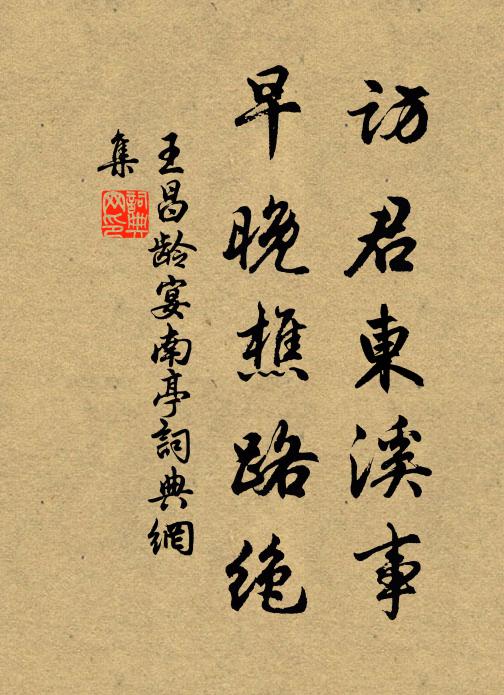 访君東溪事
早晚樵路绝
王昌龄宴南亭詞典網
集
詞典
网印